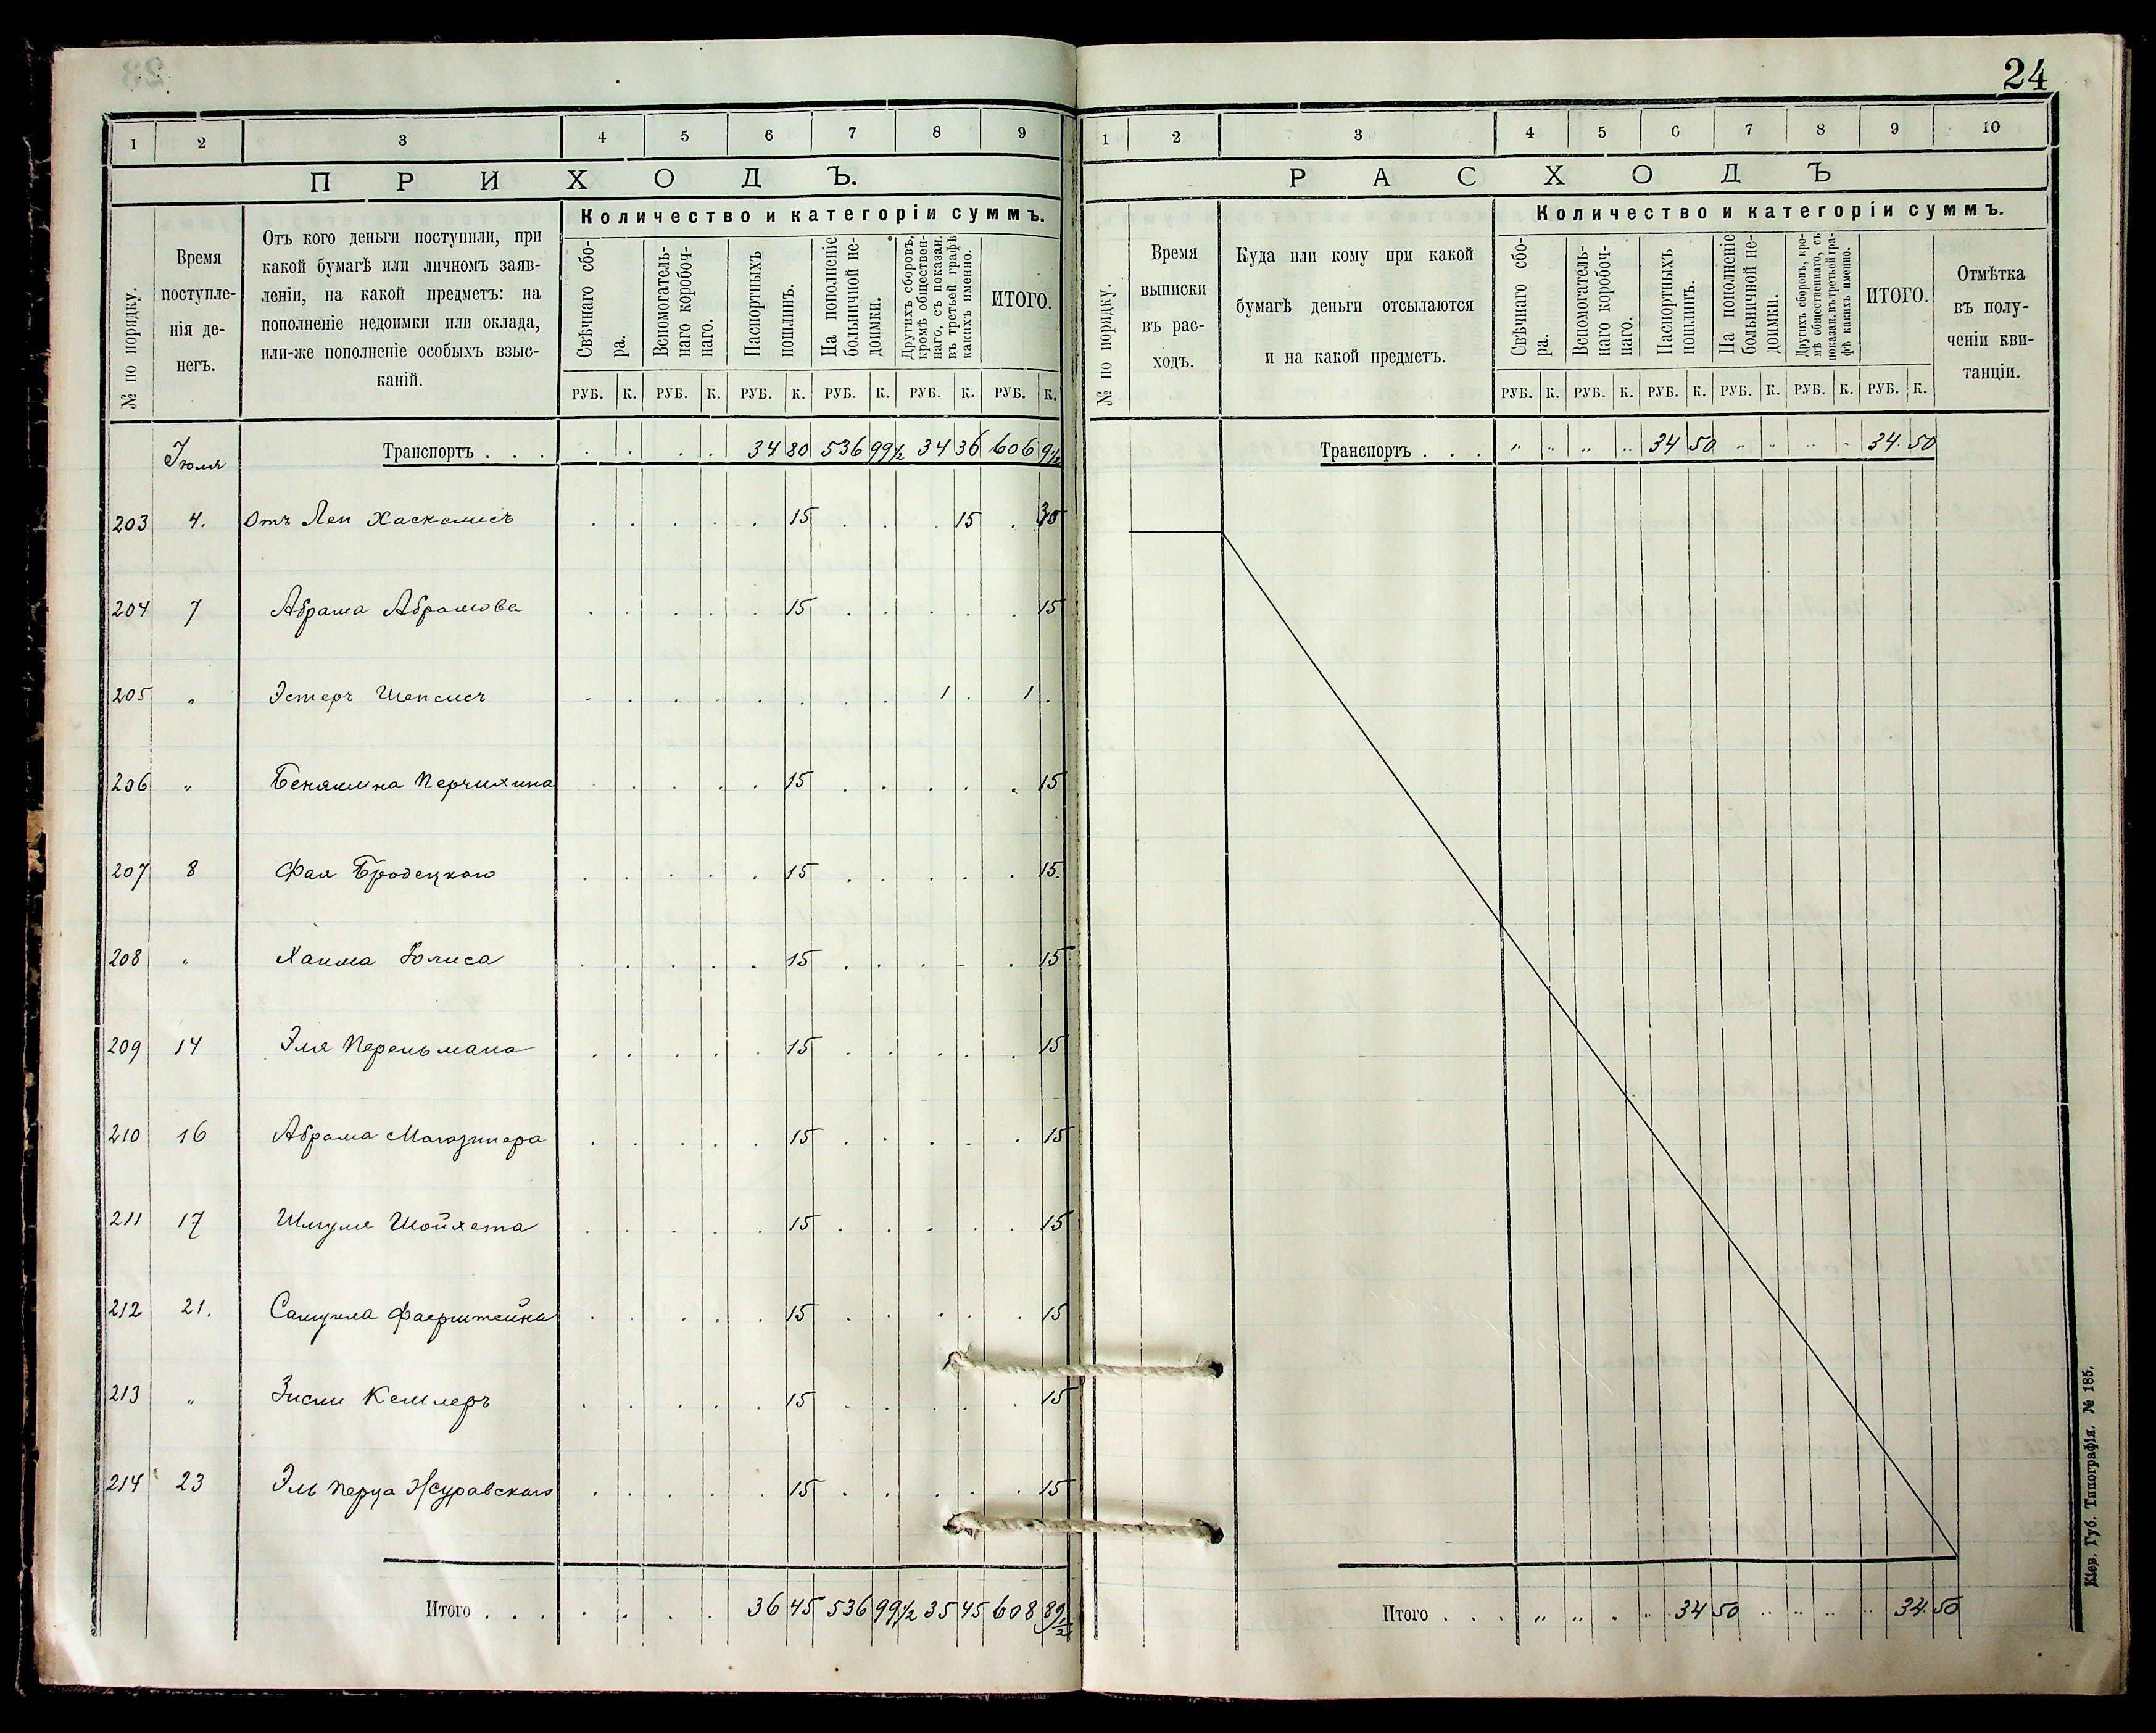 24
1 2 3 4 5 6 7 8 9
ПРИХОДЪ.
Количество и категоріи суммъ.
№ по порядку.
Время
поступле-
нія де-
негъ.
Отъ кого деньги поступили, при
какой бумагѣ или личномъ заяв-
леніи, на какой предметъ: на
пополненіе недоимки или оклада,
или-же пополненіе особыхъ взыс-
каній.
Свѣчнаго сбо-
ра.
Вспомогатель-
наго коробоч-
наго.
Паспортныхъ
пошлинъ.
На пополненіе
больничной не-
доимки.
Другихъ сборовъ,
кромѣ обществен-
наго, съ показан.
въ третьей графѣ
какихъ именно.
ИТОГО.
РУБ. К. РУБ. К. РУБ. К. РУБ. К. РУБ. К. РУБ. К.
Іюля Транспортъ . . . 34 80 536 99½ 34 36 606 9½
203 4. Отъ Леи Хаскелисъ 15 15 30
204 7 Абрама Абрамова 15 15
205 " Эстеръ Шепсисъ 1 1
206 " Беняюмна Перчихина 15 15
207 8 Фая Бродецкаго 15 15.
208 " Хаима Юлиса 15 15
209 14 Эля Перельмана 15 15
210 16 Абрама Магазинера 15 15
211 17 Шмуля Шойхета 15 15
212 21. Самуила Фаерштейна 15 15
213 " Зисли Кемлеръ 15 15
214 23 Эль Перца Журавскаго 15 15
Итого . . . 36 45 536 99½ 35 45 608 89½
1 2 3 4 5 6 7 8 9 10
РАСХОДЪ
Количество и категоріи суммъ.
№ по порядку.
Время
выписки
въ рас-
ходъ.
Куда или кому при какой
бумагѣ деньги отсылаются
и на какой предметъ.
Свѣчнаго сбо-
ра.
Вспомогатель-
наго коробоч-
наго.
Паспортныхъ
пошлинъ.
На пополненіе
больничной не-
доимки.
Другихъ сборовъ, кро-
мѣ общественнаго, съ
показан. въ третьей гра-
фѣ какихъ именно.
ИТОГО.
Отмѣтка
въ полу-
ченіи кви-
танціи.
РУБ. К. РУБ. К. РУБ. К. РУБ. К. РУБ. К. РУБ. К.
Транспортъ . . . " " " " 34 50 " " " " 34. 50
Итого . . . " " " " 34 50 " " " " 34. 50
Кіев. Губ. Типографія. № 185.